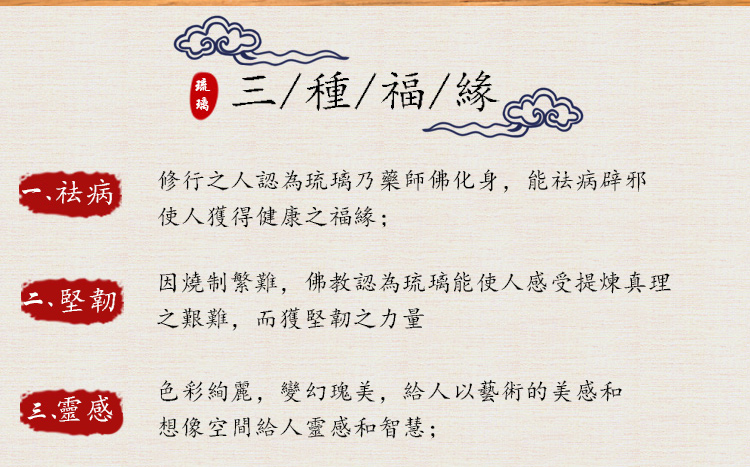 琉璃
三/種/福/緣
一、祛病
修行之人認為琉璃乃藥師佛化身，能祛病辟邪
使人獲得健康之福緣；
二、堅韌
因燒制繁難，佛教認為琉璃能使人感受提煉真理
之艱難，而獲堅韌之力量
三、靈感
色彩絢麗，變幻瑰美，給人以藝術的美感和
想像空間給人靈感和智慧；